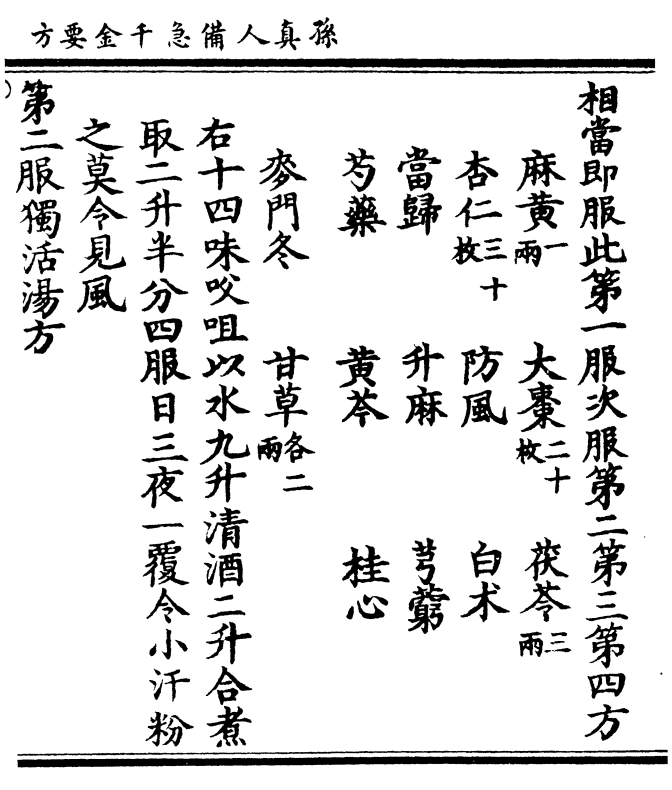 孫真人備急千金要方
相當即服此第一服次服第二第三第四方
麻黄一兩 大棗二十枚 茯苓三兩
杏仁三十枚 防風 白术
當歸 升麻 芎藭
芍藥 黄芩 桂心
麥門冬 甘草各二兩
右十四味㕮咀以水九升清酒二升合煮
取二升半分四服日三夜一覆令小汗粉
之莫令見風
第二服獨活湯方